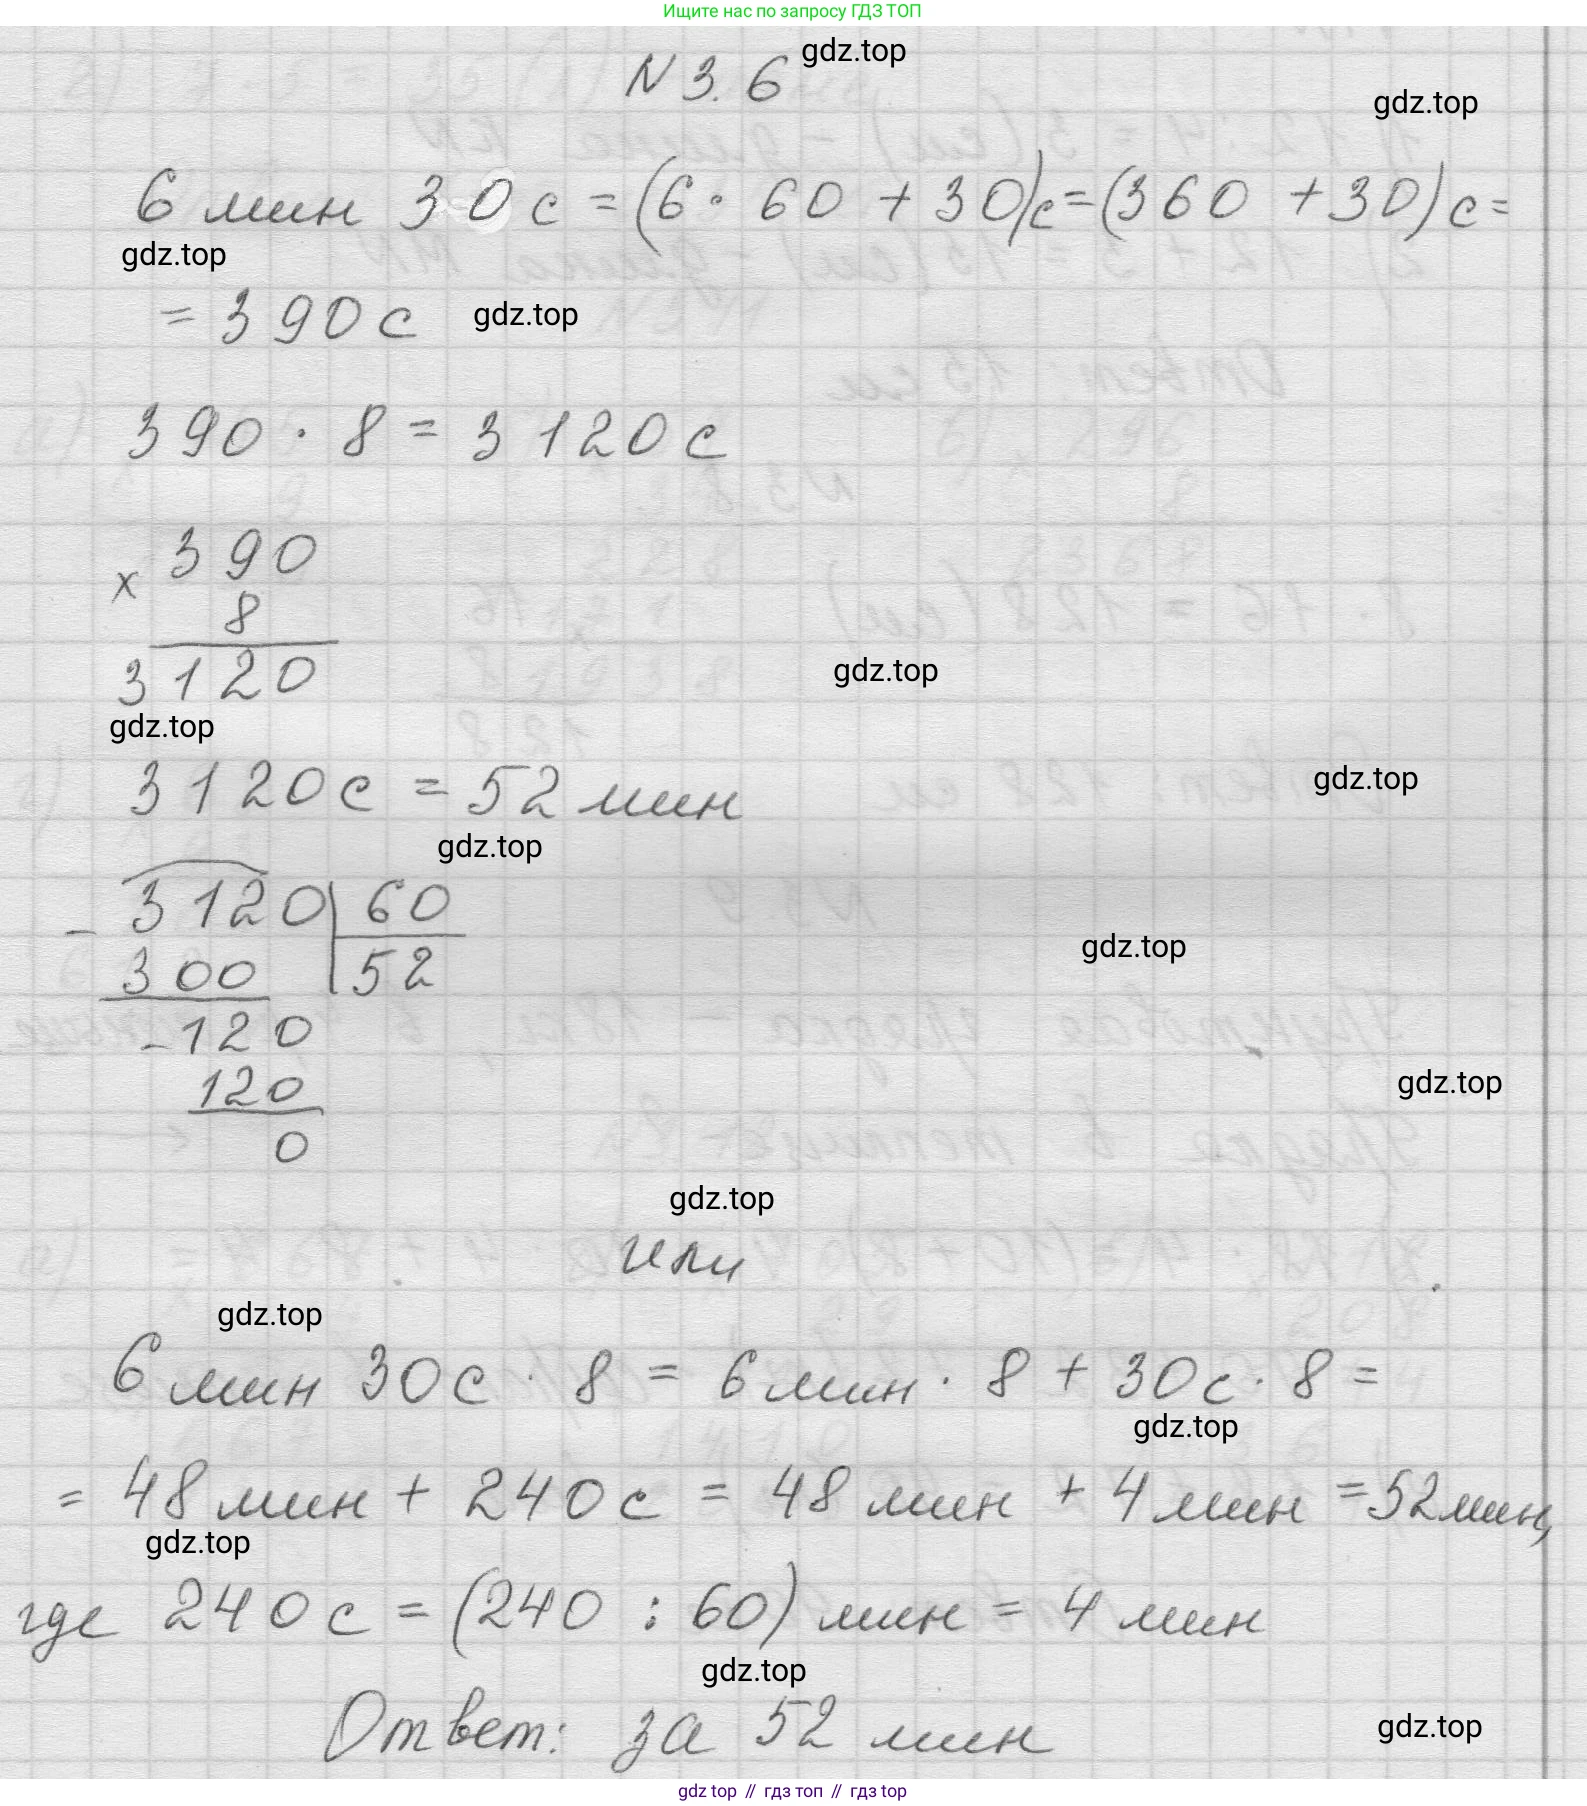 Ищите нас по запросу ГДЗ ТОП
gdz.top
N 3.6
gdz.top
6 мин 30 с = (6 · 60 + 30) с = (360 + 30) с =
gdz.top
= 390 с
gdz.top
390 · 8 = 3120 с
390
×
8
3120
gdz.top
gdz.top
3120 с = 52 мин
gdz.top
gdz.top
- 3120 | 60
300 | 52
gdz.top
- 120
120
gdz.top
0
gdz.top
или
gdz.top
6 мин 30 с · 8 = 6 мин · 8 + 30 с · 8 =
gdz.top
= 48 мин + 240 с = 48 мин + 4 мин = 52 мин,
gdz.top
где 240 с = (240 : 60) мин = 4 мин
gdz.top
Ответ: за 52 мин
gdz.top
gdz top // гдз топ // гдз top